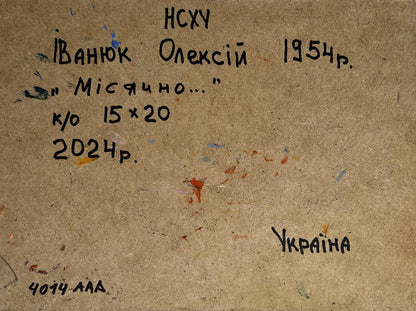 НСХУ
Іванюк Олексій 1954р.
„Місячно..."
к/о 15×20
2024р.
Україна
4014 ААД